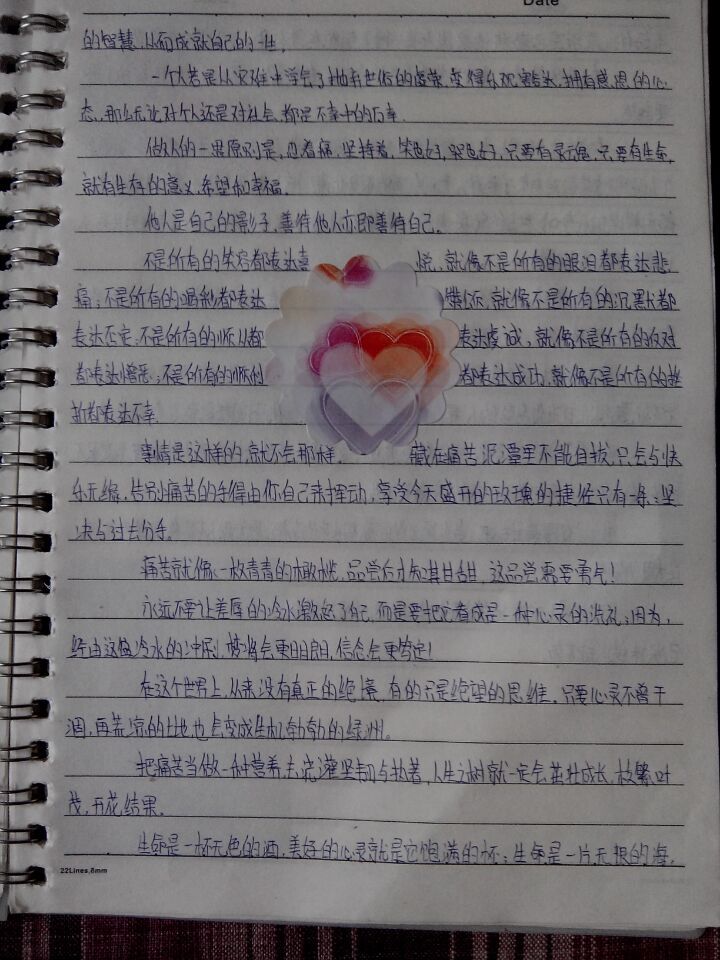 Date
的智慧,从而成就自己的一生。
一个人若是从灾难中学会了抛弃世俗的虚荣,变得乐观豁达,拥有感恩的心
态,那么无论对个人还是对社会,都是不幸中的万幸.
做人的一景原则是,忍着痛,坚持着,笑也好,哭也好,只要有灵魂,只要有生命,
就有生存的意义,希望和幸福.
他人是自己的影子,善待他人亦即善待自己。
不是所有的笑容都表达喜悦,就像不是所有的眼泪都表达悲
痛;不是所有的喝彩都表达 就像不是所有的沉默都
表达否定;不是所有的顺从都表达虔诚,就像不是所有的反对
都表达憎恶;不是所有的顺利都表达成功,就像不是所有的挫
折都表达不幸.
事情是这样的,就不会那样. 藏在痛苦泥潭里不能自拔,只会与快
乐无缘,告别痛苦的手得由你自己来挥动,享受今天盛开的玫瑰的捷径只有一条:坚
决与过去分手。
痛苦就像一枚青青的橄榄,品尝后才知其甘甜,这品尝需要勇气!
永远不要让羞辱的冷水激怒了自己,而是要把它看成是一种心灵的洗礼;因为,
经由这盆冷水的冲刷, 会更明朗,信念会更笃定!
在这个世界上,从来没有真正的绝境,有的只是绝望的思维,只要心灵不曾干
涸,再荒凉的土地也会变成生机勃勃的绿洲。
把痛苦当做一种营养去浇灌坚韧与执著,人生之树就一定会茁壮成长,枝繁叶
茂,开花结果.
生命是一杯无色的酒,美好的心灵就是它饱满的杯;生命是一片无垠的海,
22Lines,8mm